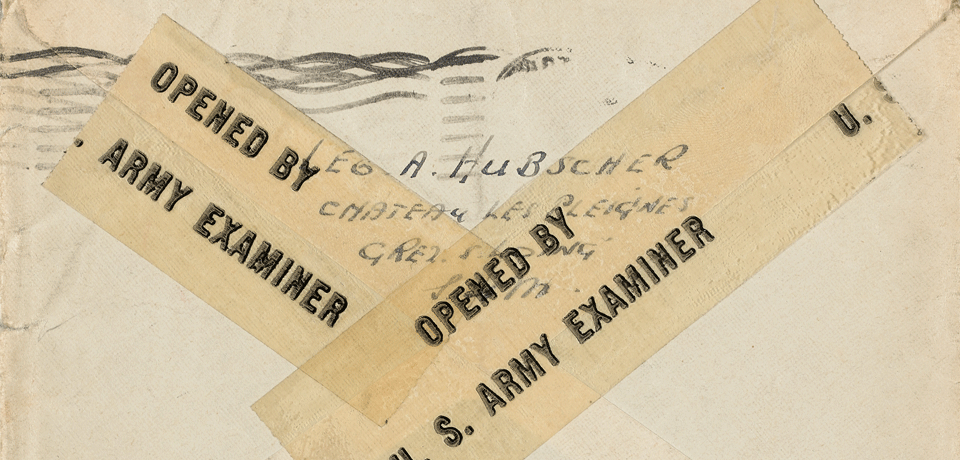 OPENED BY
. ARMY EXAMINER
LEO A. HUBSCHER
CHATEAU LES PLEIGNES
GREZ S/LOING
S. ET M.
OPENED BY
U. S. ARMY EXAMINER
U.